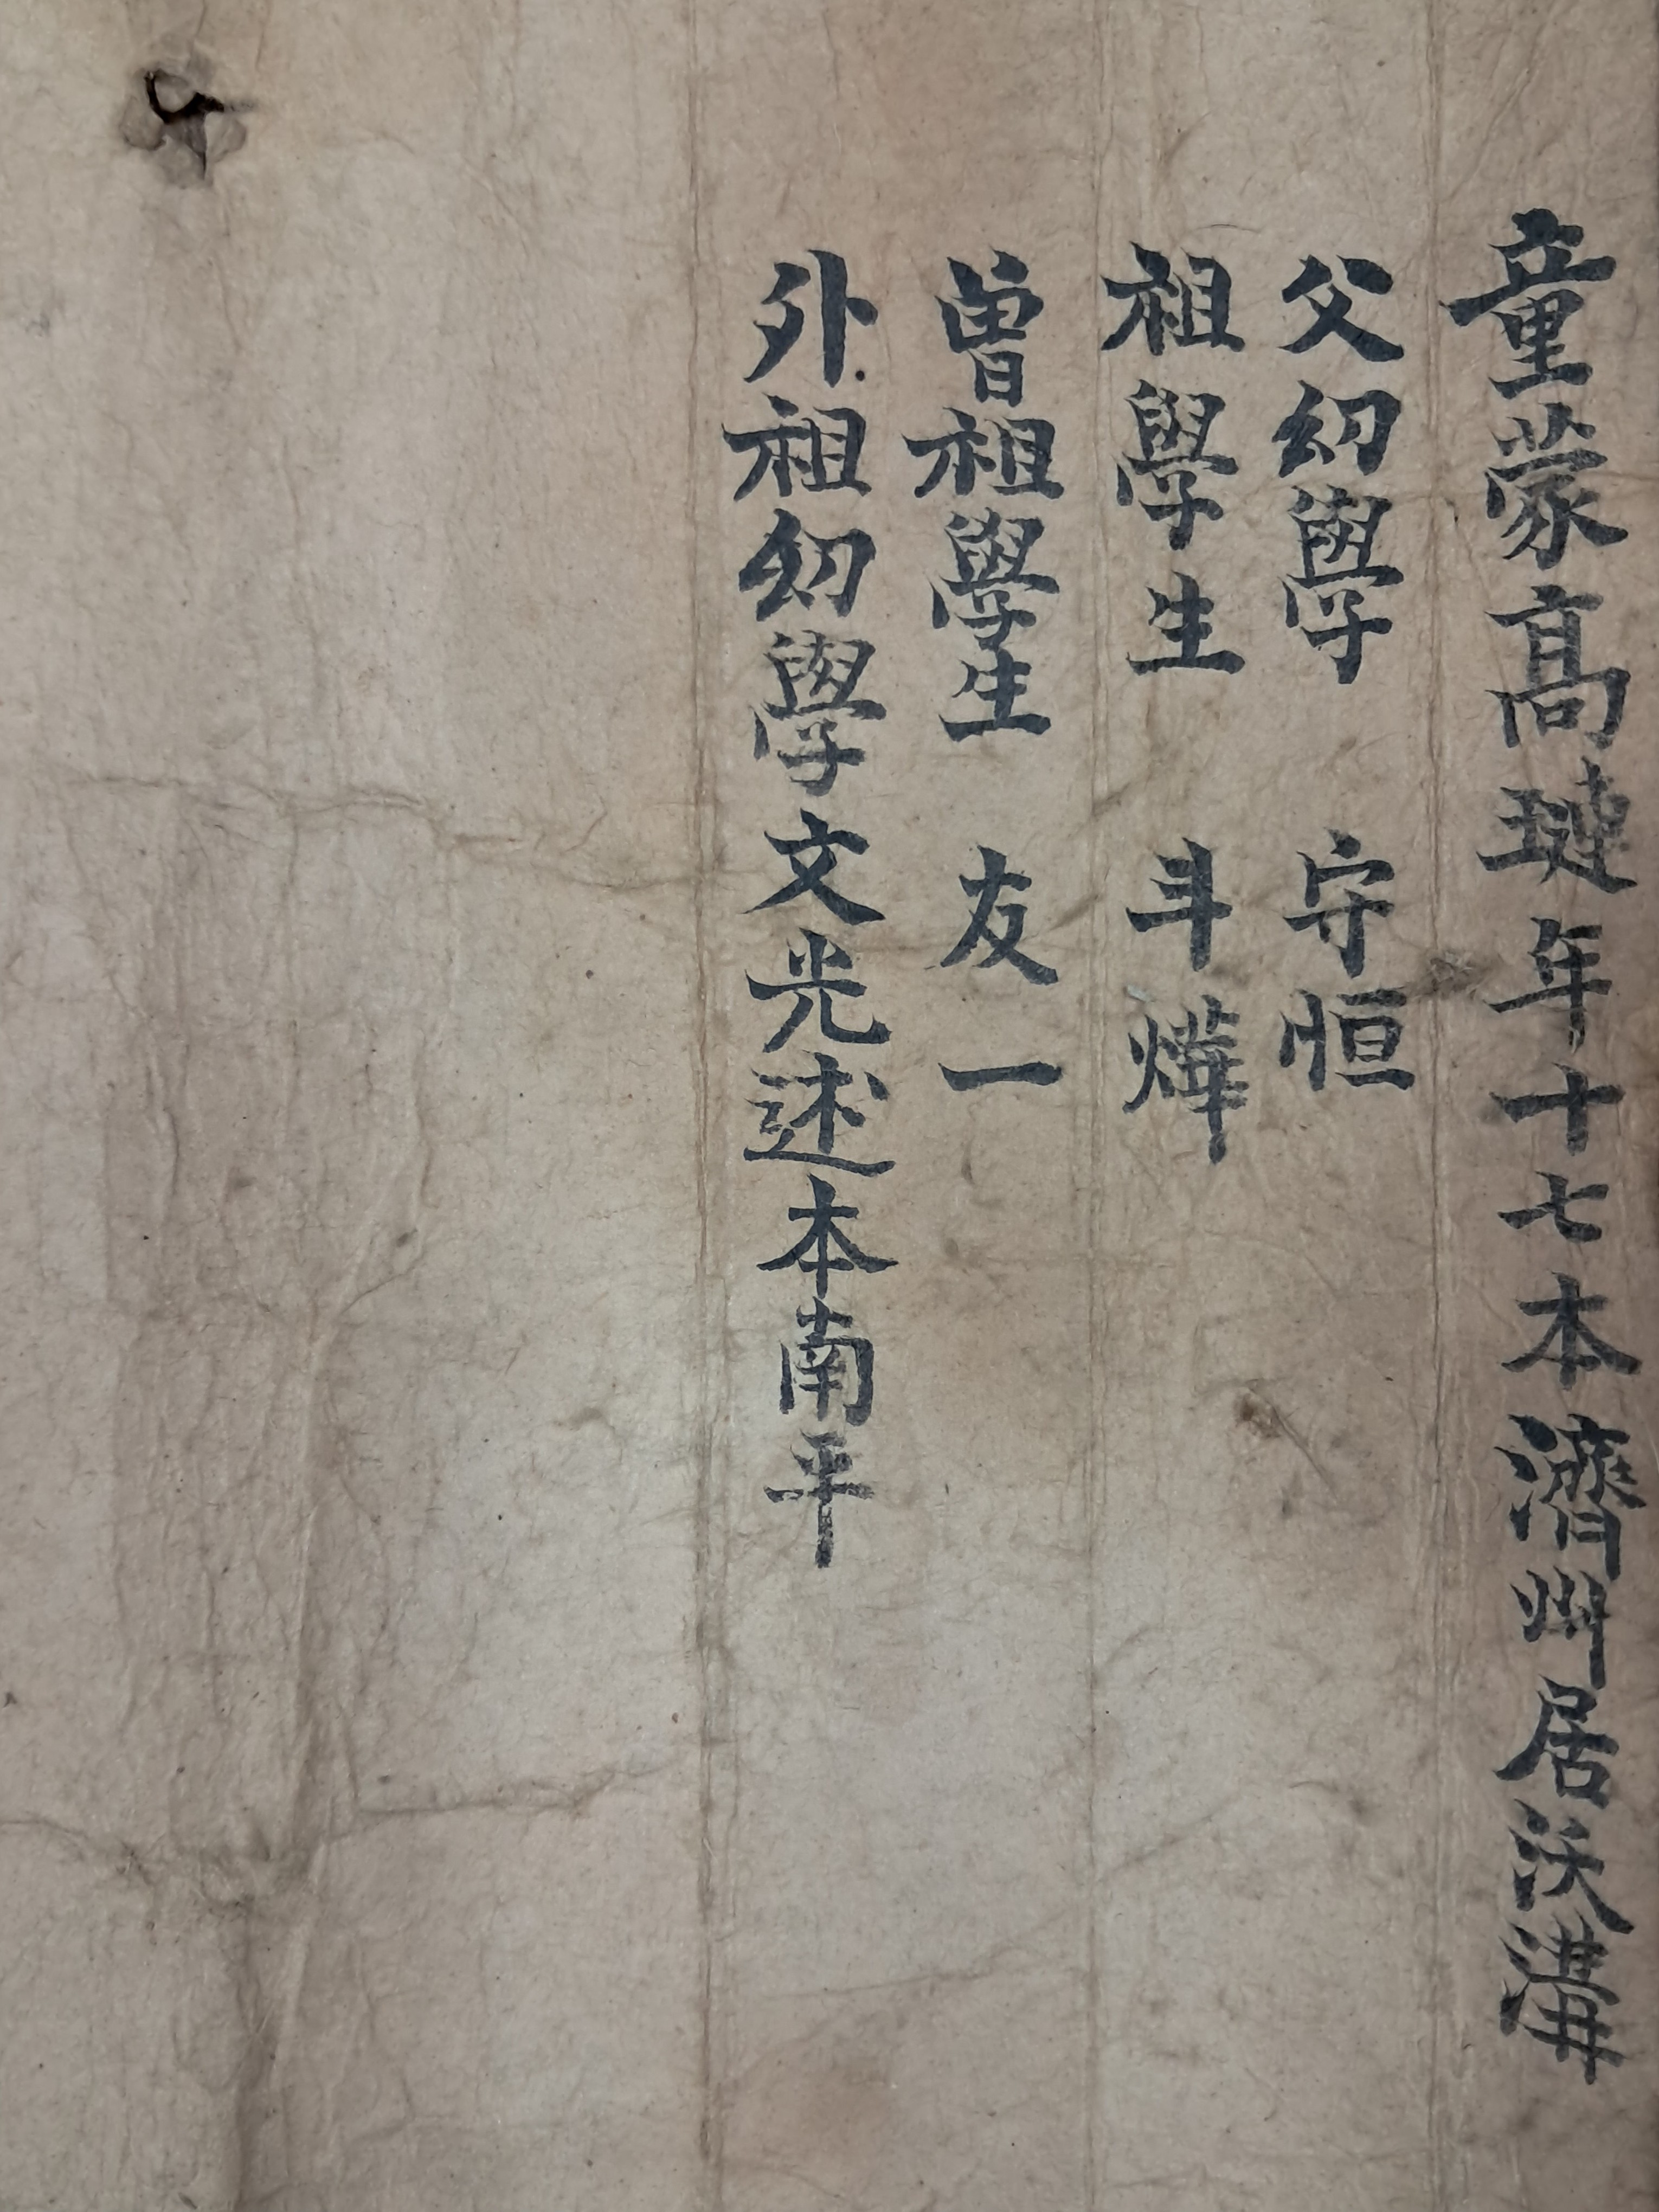 童蒙高璉年十七本濟州居沃溝
父幼學 守恒
祖學生 斗燁
曽祖學生 友一
外祖幼學文光述本南平